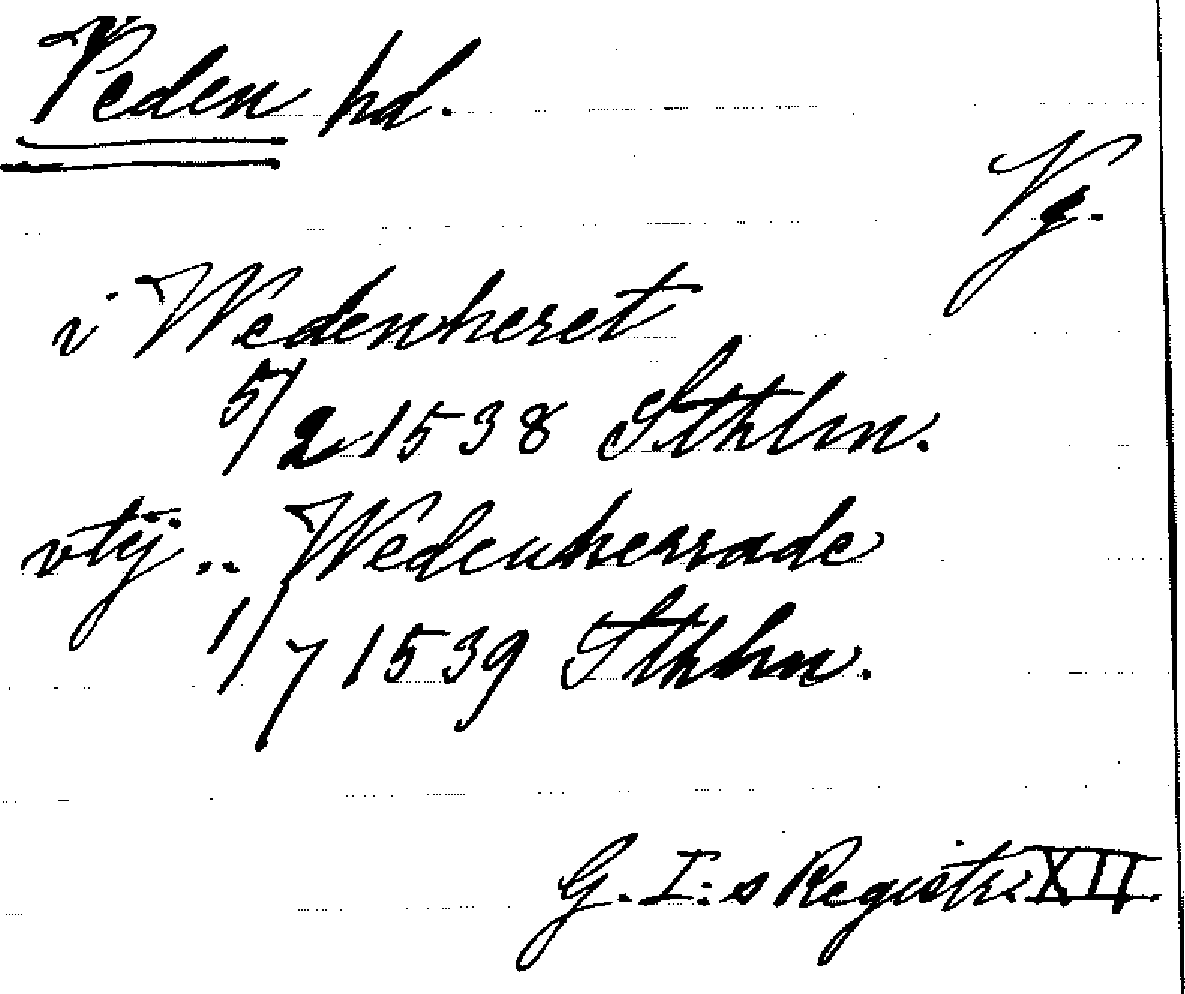 Veden hd.
Vg.
i Wedenheret
5/2 1538 Sthlm.
vtij .. Wedenherrade
1/7 1539 Sthlm.
G. I:s Registr. XII.